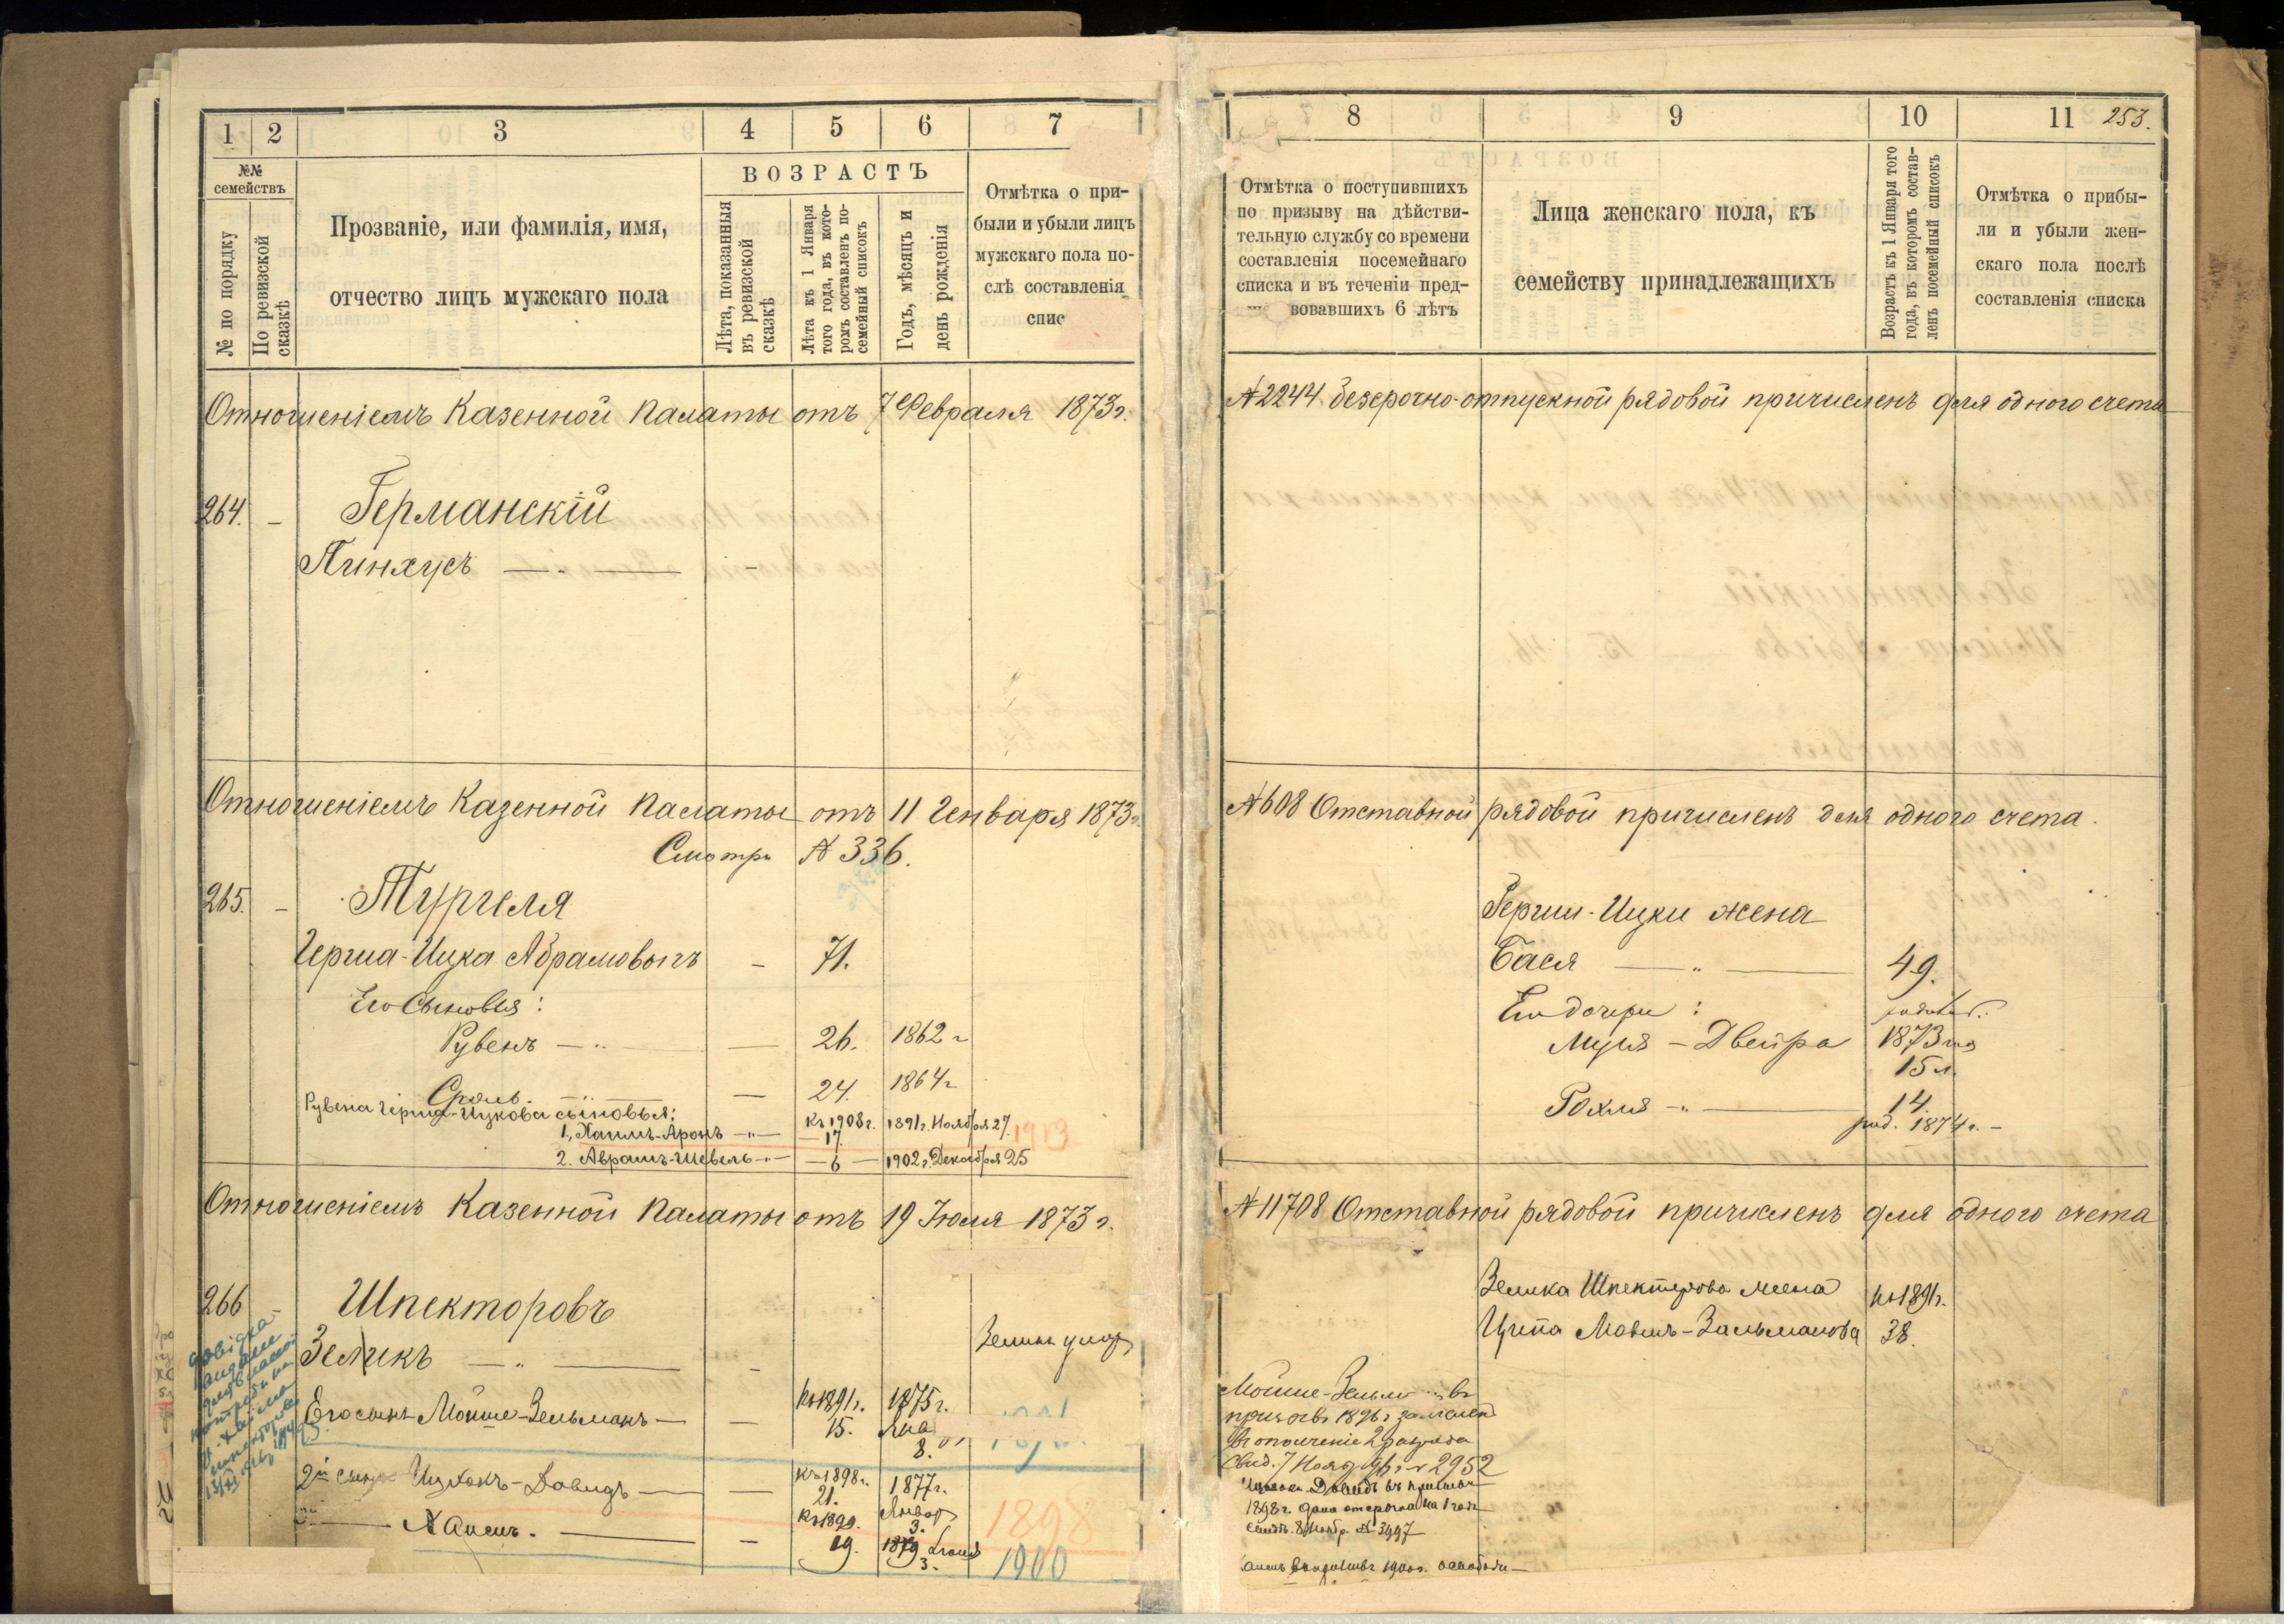 1 2 3 4 5 6 7
№№ семействъ
№ по порядку
По ревизской сказкѣ
Прозваніе, или фамилія, имя,
отчество лицъ мужскаго пола
ВОЗРАСТЪ
Лѣта, показанныя
въ ревизской
сказкѣ
Лѣта къ 1 Января
того года, въ кото-
ромъ составленъ по-
семейный списокъ
Годъ, мѣсяцъ и
день рожденія
Отмѣтка о при-
были и убыли лицъ
мужскаго пола по-
слѣ составленія
спис
Отношеніемъ Казенной Палаты отъ 7 Февраля 1873 г.
264. — Германскій
Пинхусъ — „ — —
Отношеніемъ Казенной Палаты отъ 11 Генваря 1873 г.
Смотри № 336.
265. — Тургеля
Герша-Ицка Абрамовичъ — 71.
Его Сыновья:
Рувенъ — „ — — 26. 1862 г
Сроль — „ — — 24. 1864 г
Рувена Герша-Ицкова сыновья:
1., Хаимъ-Аронъ — „ — Къ 1908 г. 17. 1891 г. Ноября 27. 1913
2. Аврамъ-Шевель — „ — — 6 — 1902 г. Декабря 25
Отношеніемъ Казенной Палаты отъ 19 Іюля 1873 г.
266 — Шпекторовъ
Зеликъ — „ — — Зеликъ умеръ
Его сынъ Мойше-Зельманъ — — Къ 1891 г. 15. 1875 г.
8.
2й сынъ Ицхокъ-Давидъ — — Къ 1898 г. 21. 1877 г. Январ 3. 1898
Хаимъ. — — Къ 1899. 19. 1879 3. 1900
8 9 10 11 253.
Отмѣтка о поступившихъ
по призыву на дѣйстви-
тельную службу со времени
составленія посемейнаго
списка и въ теченіи пред-
вовавшихъ 6 лѣтъ
Лица женскаго пола, къ
семейству принадлежащихъ
Возрастъ къ 1 Января того
года, въ которомъ состав-
ленъ посемейный списокъ
Отмѣтка о прибы-
ли и убыли жен-
скаго пола послѣ
составленія списка
№ 2244 безсрочно-отпускной рядовой причисленъ для одного счета
№ 608 Отставной рядовой причисленъ для одного счета.
Герши-Ицки жена
Бася — „ — 49.
Его дочери:
Муся-Двейра 1873 год
15 л.
Рохля — „ — 14
род. 1874 г. —
№ 11708 Отставной рядовой причисленъ для одного счета
Зелика Шпекторова жена Къ 1891 г.
Ципа Мовшъ-Зальманова 38.
Мойше-Зельм въ
призывъ 1896 г зачислен
въ ополченіе 2 разряда
свид. 7 Нояб 96 г № 2952
Давидъ въ призывъ
1898 г. дана отсрочка на 1 годъ
свидѣт. 8 Ноябр. № 3997
1900 г.